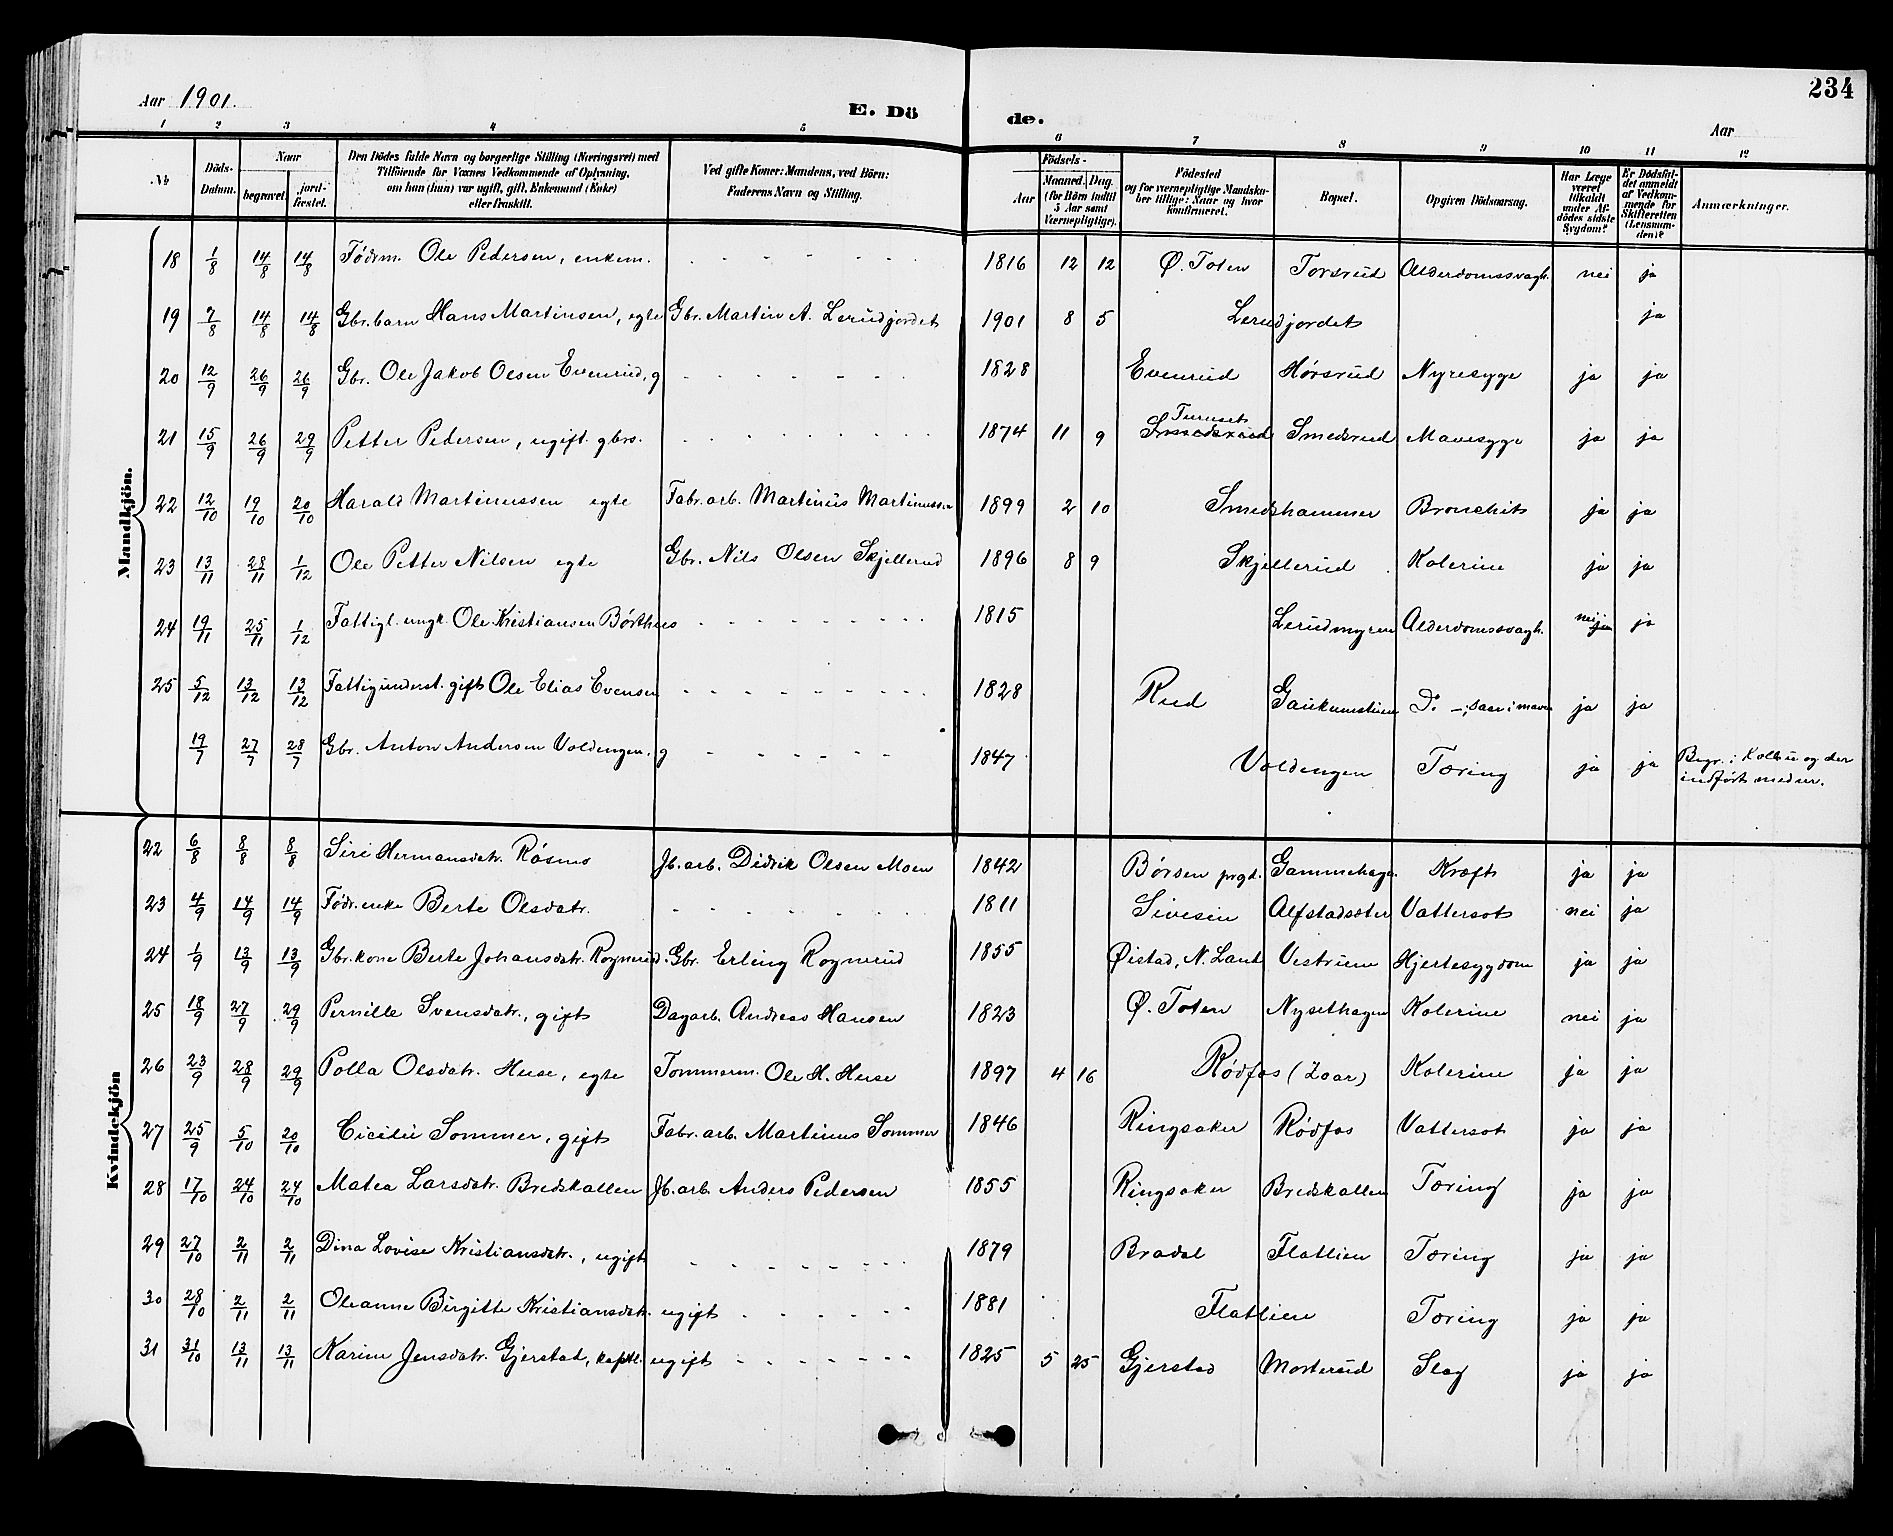 234
Aar 1901.
E. Dö de.
Aar
1 2 3 4 5 6 7 8 9 10 11 12
№
Döds-Datum.
Naar
begravet.
jord-fæstet.
Den Dödes fulde Navn og borgerlige Stilling (Næringsvei) med Tilföiende for Voxnes Vedkommende af Oplysning, om han (hun) var ugift, gift, Enkemand (Enke) eller fraskilt.
Ved gifte Koner: Mandens, ved Börn: Faderens Navn og Stilling.
Födsels-
Aar
Maaned. Dag.
(for Börn indtil 5 Aar samt Værnepligtige).
Födested og for værnepligtige Mandskaber tillige: Naar og hvor konfirmeret.
Bopæl.
Opgiven Dödsaarsag.
Har Læge været tilkaldt under Afdödes sidste Sygdom?
Er Dödsfaldet anmeldt af Vedkommende for Skifteretten (Lensmanden)?
Anmærkninger.
Mandkjön.
18 1/8 14/8 14/8 Föderm. Ole Pedersen, enkem. 1816 12 12 Ø. Toten Torsrud Alderdomssvagh. nei ja
19 7/8 14/8 14/8 Gbr. barn Hans Martinsen, egte Gbr. Martin A. Lerudjordet 1901 8 5 Lerudjordet ja
20 12/9 26/9 26/9 Gbr. Ole Jakob Olsen Evenrud, g 1828 Evenrud Hørsrud Nyresyge ja ja
21 15/9 26/9 29/9 Petter Pedersen, ugift gbrs. 1874 11 9 Smedsrud Smedsrud Mavesyge ja ja
22 12/10 19/10 20/10 Harald Martinussen egte Fabr. arb. Martinus Martinussen 1899 2 10 Smedshammer Bronchit ja ja
23 13/11 28/11 1/12 Ole Petter Nilsen egte Gbr. Nils Olsen Skjellerud 1896 8 9 Skjellerud Kolerine ja ja
24 19/11 25/11 1/12 Fattigl. ungk. Ole Kristiansen Børthus 1815 Lerudmyren Alderdomssvagh. nei ja
25 5/12 13/12 13/12 Fattigunderst. gift Ole Elias Evensen 1828 Rud D: -; saar i maven ja ja
19/7 27/7 28/7 Gbr. Anton Andersen Voldengen, g 1847 Voldengen Tæring ja ja Begr. i Kolbu og der indført med nr.
Kvindekjön
22 6/8 8/8 8/8 Siri Hermansdatr. Røsmo Jb. arb. Didrik Olsen Moen 1842 Børsen prgd. Gammehagen Kræft ja ja
23 4/9 14/9 14/9 Födr. enke Berte Olsdatr. 1811 Sivesin Alfstadsæter Vattersot nei ja
24 1/9 13/9 13/9 Gbr. kone Berte Johansdatr. Rognerud. Gbr. Erling Rognerud 1855 Øistad, N. Land Vestrum Hjertesygdom ja ja
25 18/9 27/9 29/9 Pernille Svensdatr., gift Dagarb. Andreas Hansen 1823 Ø. Toten Nysethagen Kolerine nei ja
26 23/9 28/9 29/9 Polla Olsdatr. Huse, egte Tømmerm. Ole H. Huse 1897 4 16 Rødfos (Zoar) Kolerine ja ja
27 25/9 5/10 20/10 Cicilie Sommer, gift Fabr. arb. Martinus Sommer 1846 Ringsaker Rødfos Vattersot ja ja
28 17/10 24/10 24/10 Matea Larsdatr. Bredskallen Jb. arb. Anders Pedersen 1855 Ringsaker Bredskallen Tæring ja ja
29 27/10 2/11 2/11 Dina Lovise Kristiansdatr., ugift 1879 Bradal Flatlien Tæring ja ja
30 28/10 2/11 2/11 Oleanne Birgitte Kristiansdatr. ugift 1881 Flatlien Tæring ja ja
31 31/10 13/11 13/11 Karine Jensdatr. Gjerstad, ugift 1825 5 25 Gjerstad Mosterud Slag ja ja